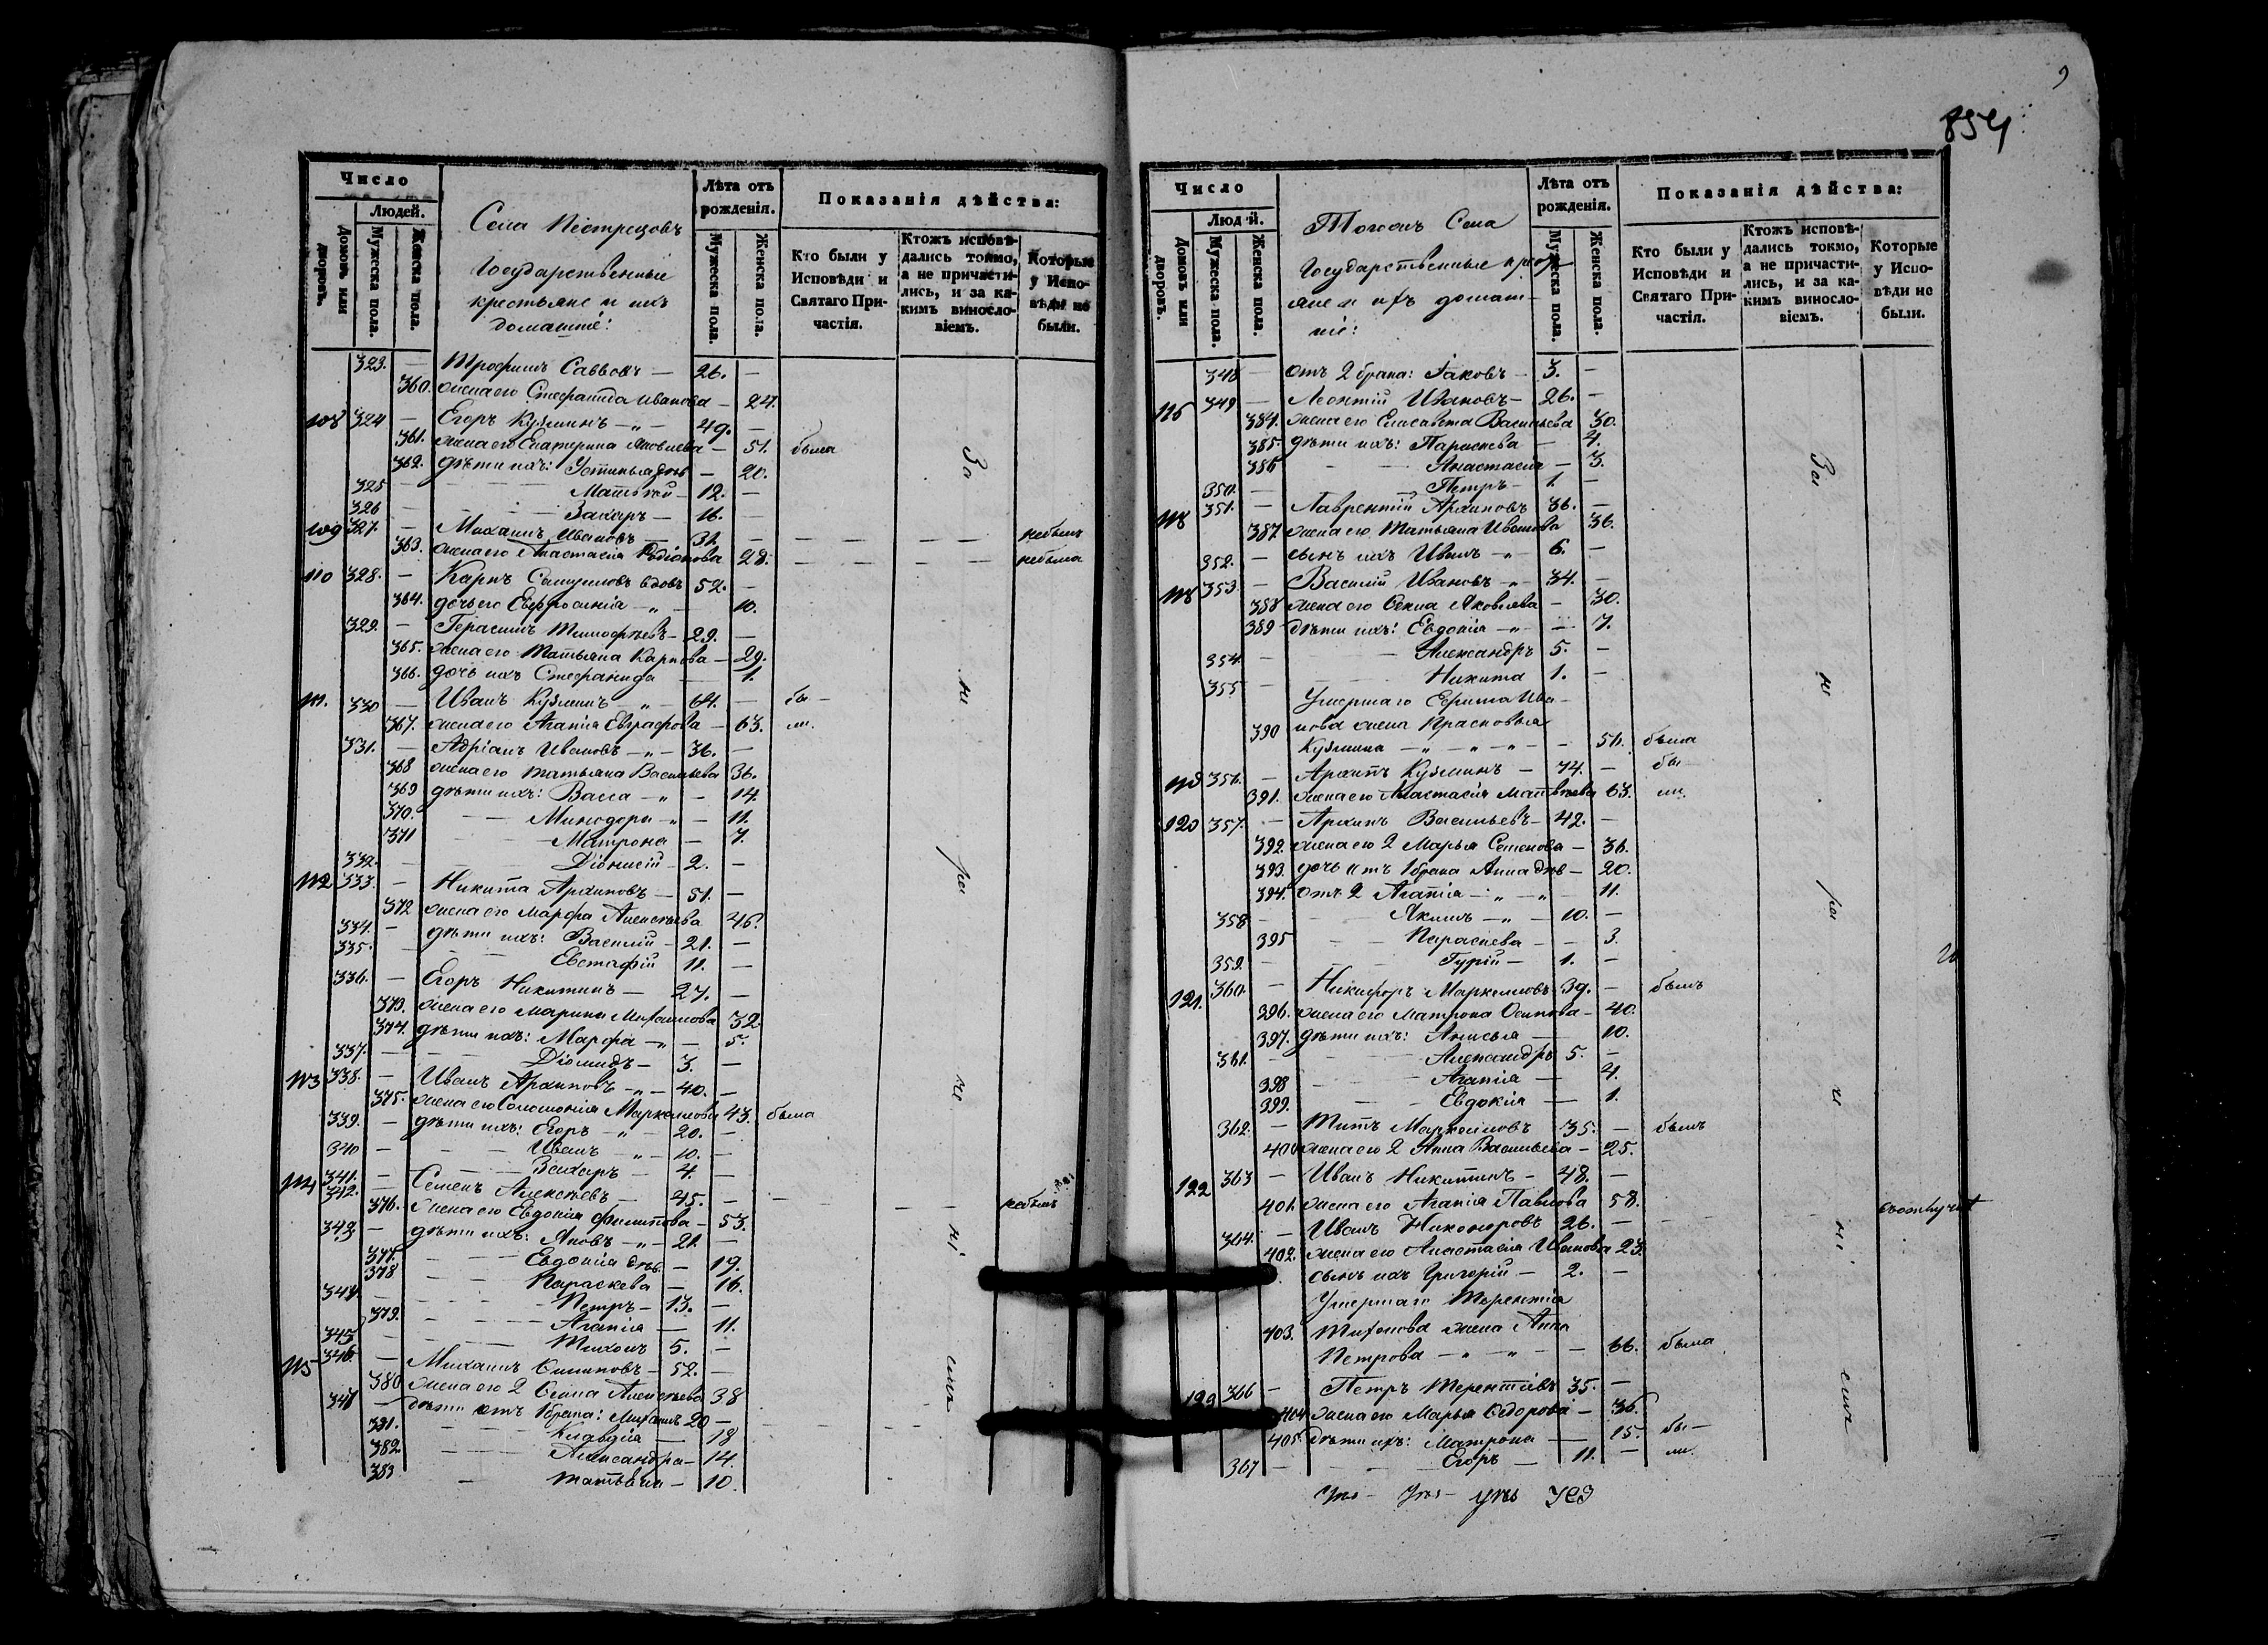 Число
Людей.
Домовъ или дворовъ.
Мужеска пола.
Женска пола.
Села Пестрецовъ
Государственные
крестьяне и ихъ
домашніе:
Лѣта отъ рожденія.
Мужеска пола.
Женска пола.
Показанія дѣйства:
Кто были у Исповѣди и Святаго Причастія.
Ктожъ исповѣдались токмо, а не причастились, и за какимъ винословіемъ.
Которые у Исповѣди не были.
323. — Трофимъ Саввовъ — 26. —
360. жена его Стефанида Иванова — 24.
108 324 — Егоръ Кузминъ — „ — 49. —
361. жена его Екатерина Яковлева — 51. была
362. дѣти ихъ: Устинья дѣв — 20.
325 Матвѣй — 12. —
326 Захаръ — 16. —
109 327. — Михаилъ Ивановъ — 31. — небылъ
363. жена его Анастасія Родіонова 28. небыла
110 328. — Карпъ Самуиловъ вдовъ 52. —
364. дочь его Евфросинія — „ — 10.
329. — Герасимъ Тимофѣевъ — 29. —
365. жена его Татьяна Карпова — 29.
366. дочь ихъ Стефанида — 1.
111. 330 — Иванъ Кузминъ „ — 64. — бы —
367. жена его Агапія Евграфова — 63. ли.
331. — Адріанъ Ивановъ — „ — 36. —
368 жена его Татьяна Васильева 36.
369 дѣти ихъ: Васса — „ — 14.
370. Минодора — „ — 11.
371 Матрона — 7.
332. Діонисій — 2. —
112 333. — Никита Архиповъ — 51. —
372 жена его Марфа Алексѣева 46.
334. — дѣти ихъ: Василій — 21. —
335. Евстафій 11. —
336. — Егоръ Никитинъ — 27. —
373. жена его Марина Михаилова 32
374. дѣти ихъ: Марфа — „ — 5.
337. — Діомидъ — 3. —
113 338. — Иванъ Архиповъ — „ — 40. —
375. жена его Соломонія Маркелова 43. была
339. — дѣти ихъ: Егоръ — „ — 20. —
340 Иванъ — „ — 10. —
341. — Захаръ — 4. —
114 342. — Семенъ Алексѣевъ — 45. — небылъ
376. жена его Евдокія Филиппова — 53.
343 — дѣти ихъ: Яковъ — „ — 21. —
377. Евдокія дѣв. — 19.
378 Параскева — 16.
344 Петръ — 13. —
379. Агапія — 11.
345 Тихонъ 5. —
115 346. — Михаилъ Осиповъ — 52. —
380 жена его 2 Ѳекла Алексѣева 38
347 — дѣти отъ 1 брака: Михаилъ 20 —
381. Клавдія — 18
382. Александра — 14.
383 — Татьяна — 10.
За не ра че ні емъ
854
Число
Людей.
Домовъ или дворовъ.
Мужеска пола.
Женска пола.
Тогожъ Села
Государственные кресть
яне и ихъ домаш —
ніе:
Лѣта отъ рожденія.
Мужеска пола.
Женска пола.
Показанія дѣйства:
Кто были у Исповѣди и Святаго Причастія.
Ктожъ исповѣдались токмо, а не причастились, и за какимъ винословіемъ.
Которые у Исповѣди не были.
348 — отъ 2 брака: Іаковъ — 3. —
116 349 — Леонтій Ивановъ — 26. —
384. жена его Елисавета Васильева 30.
385. дѣти ихъ: Параскева — 4.
386 Анастасія — 3.
350. — Петръ — 1. —
351. — Лаврентій Архиповъ 36. —
387 жена его Татьяна Иванова 36.
352. — сынъ ихъ Иванъ — „ — 6. —
118 353. — Василій Ивановъ — „ — 34. —
388 жена его Ѳекла Яковлева — 30.
389 дѣти ихъ: Евдокія — „ — 7.
354. — Александръ 5. —
355 Никита 1. —
Умершаго Ефима Ива —
390 нова жена Прасковья
Кузмина — „ — „ — „ — 51. была
356. — Архипъ Кузминъ — 74. — бы
391. жена его Анастасія Матвѣева 63. ли.
120 357. — Архипъ Васильевъ — 42. —
392. жена его 2 Марья Семенова — 36.
393. дочь отъ 1 брака Анна дѣв — 20.
394. отъ 2 Агапія — „ — „ — 11.
358 — Акимъ — „ — 10. —
395 Параскева — 3.
359. Гурій — 1. —
121. 360. — Никифоръ Маркеловъ 39. — былъ
396. жена его Матрона Осипова — 40.
397. дѣти ихъ: Анисья — 10.
361. Александръ 5. —
398 Агапія — 4.
399. Евдокія — 1.
362. — Титъ Маркеловъ 35. — былъ
400 жена его 2 Анна Васильева — 25.
122 363 — Иванъ Никитинъ — 48. —
401. жена его Агапія Павлова 58.
364. — Иванъ Никоноровъ 26. —
402. жена его Анастасія Иванова 23.
сынъ ихъ Григорій — 2. —
Умершаго Терентія
403. Тихонова жена Анна
Петрова — „ — „ — 66. была
366 — Петръ Терентіевъ 35. —
404 жена его Марья Ѳедорова — 36.
405. дѣти ихъ: Матрона — 15. бы —
367 — Егоръ — 11. — ли.
За не ра че ні емъ